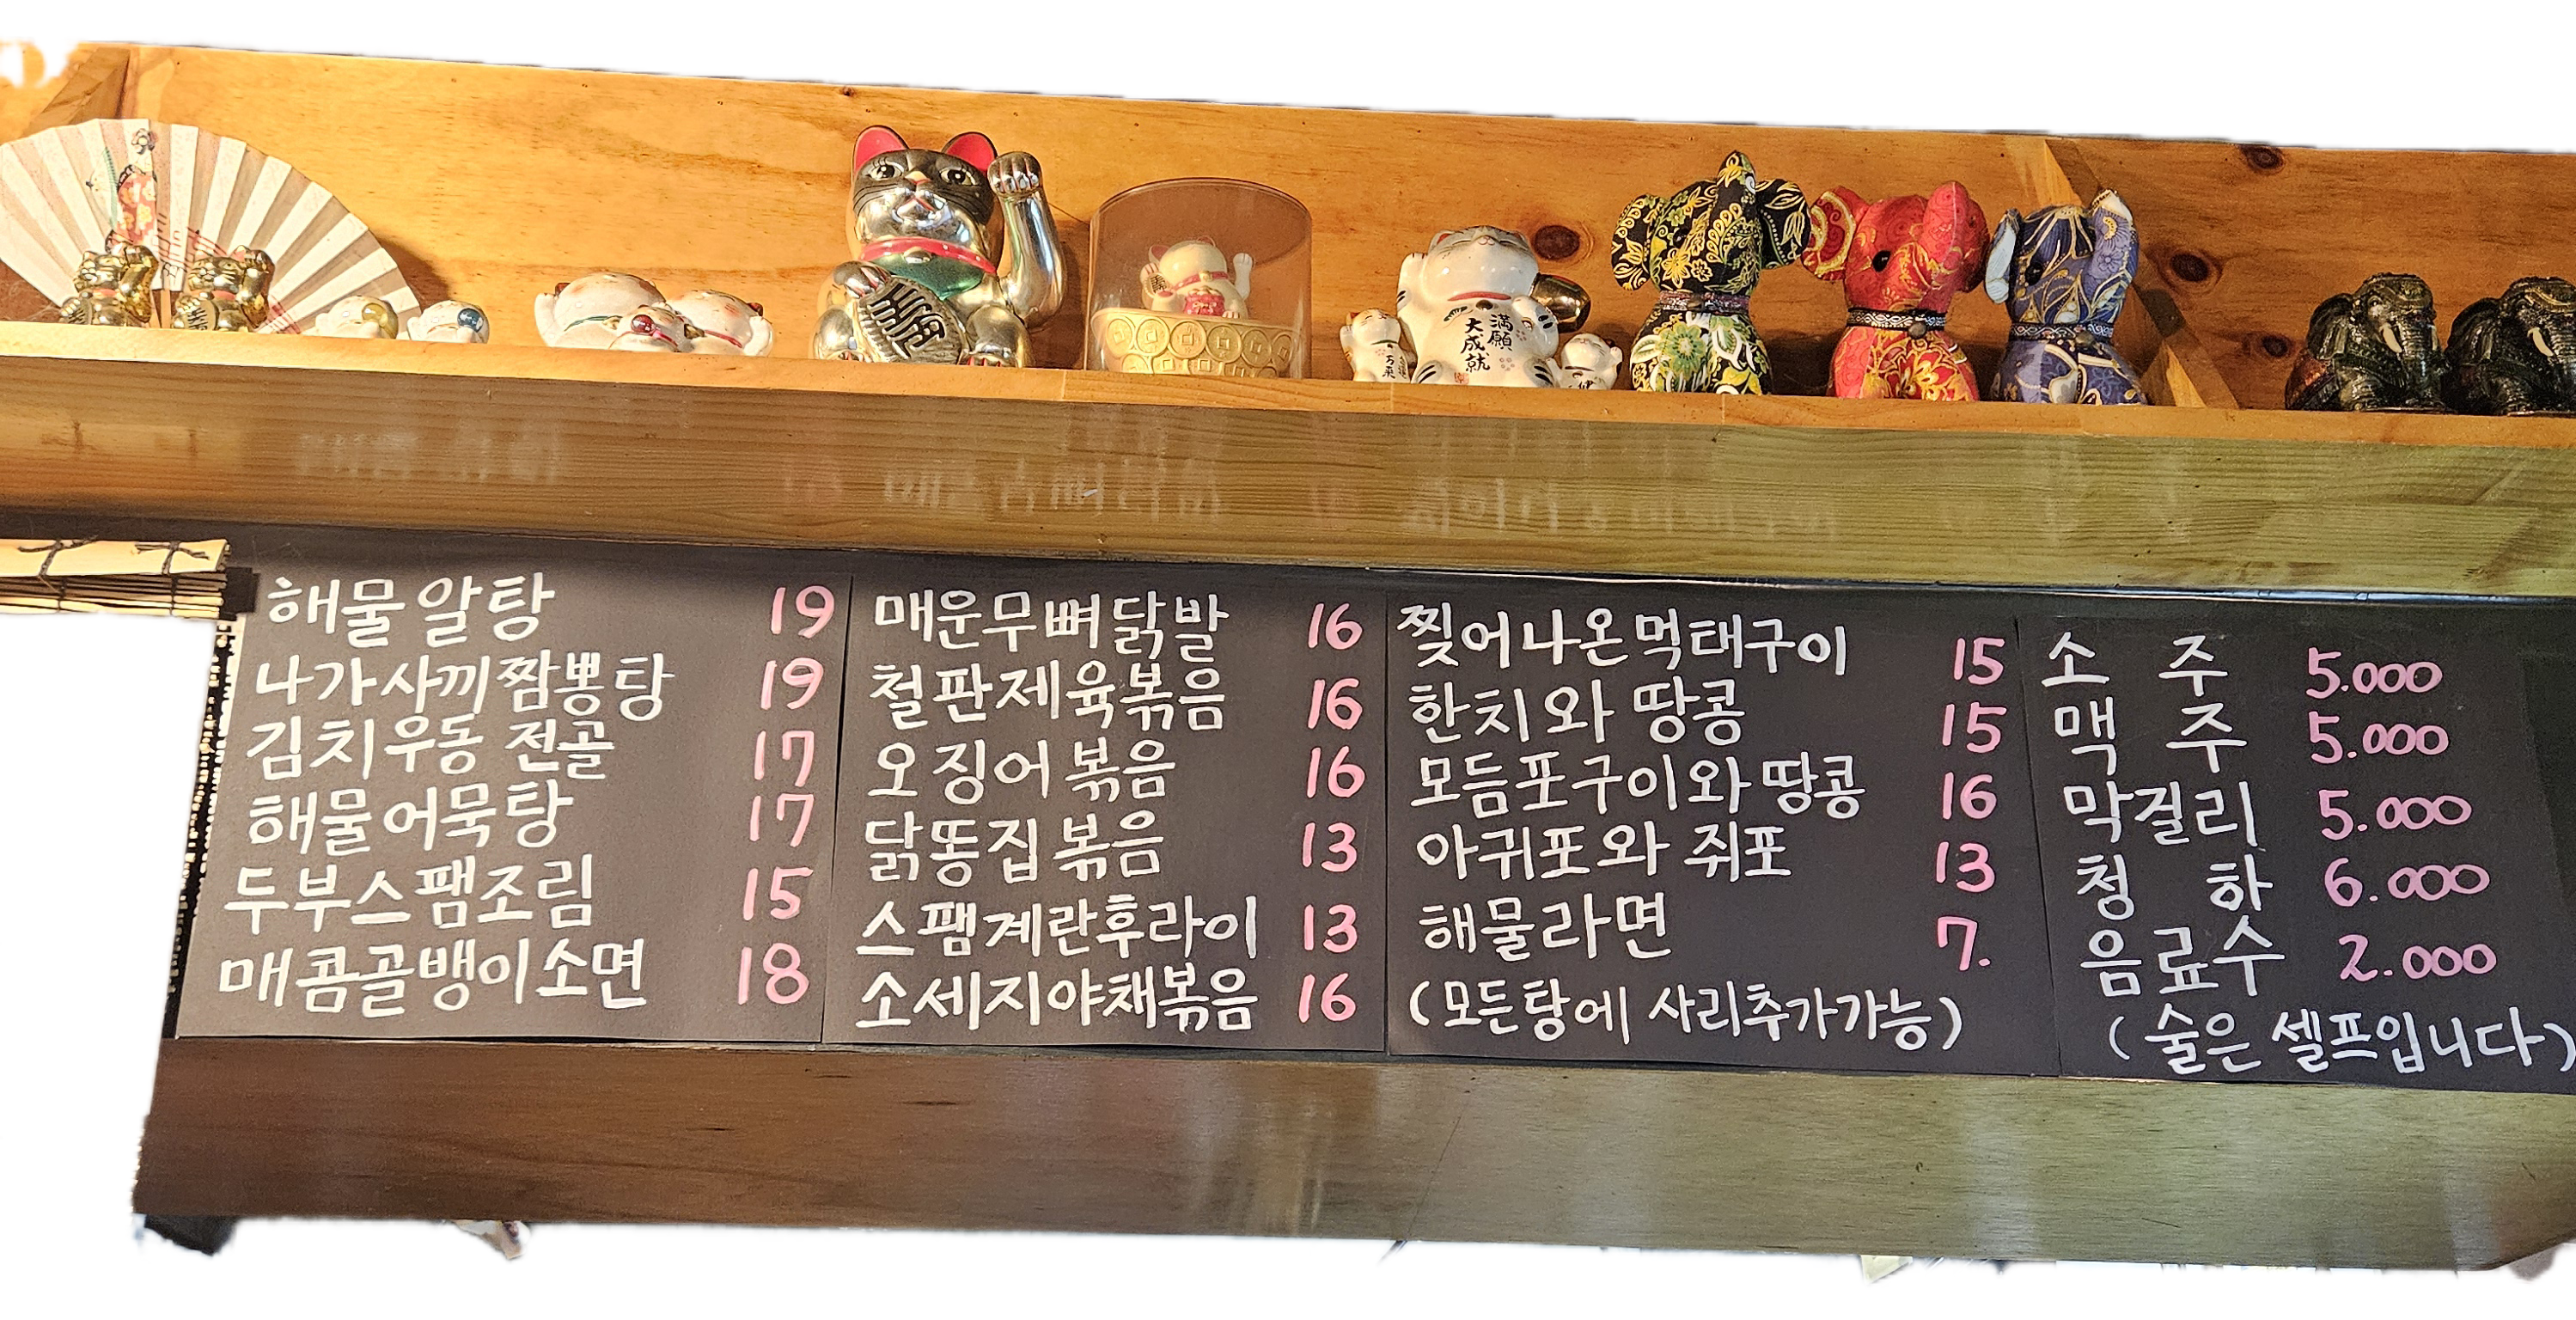 満願
大成就
해물알탕 19
나가사끼짬뽕탕 19
김치우동 전골 17
해물어묵탕 17
두부스팸조림 15
매콤골뱅이소면 18
매운무뼈닭발 16
철판제육볶음 16
오징어볶음 16
닭똥집볶음 13
스팸계란후라이 13
소세지야채볶음 16
찢어나온먹태구이 15
한치와 땅콩 15
모듬포구이와땅콩 16
아귀포와 쥐포 13
해물라면 7.
(모든탕에 사리추가가능)
소 주 5.000
맥 주 5.000
막걸리 5.000
청 하 6.000
음료수 2.000
(술은 셀프입니다)